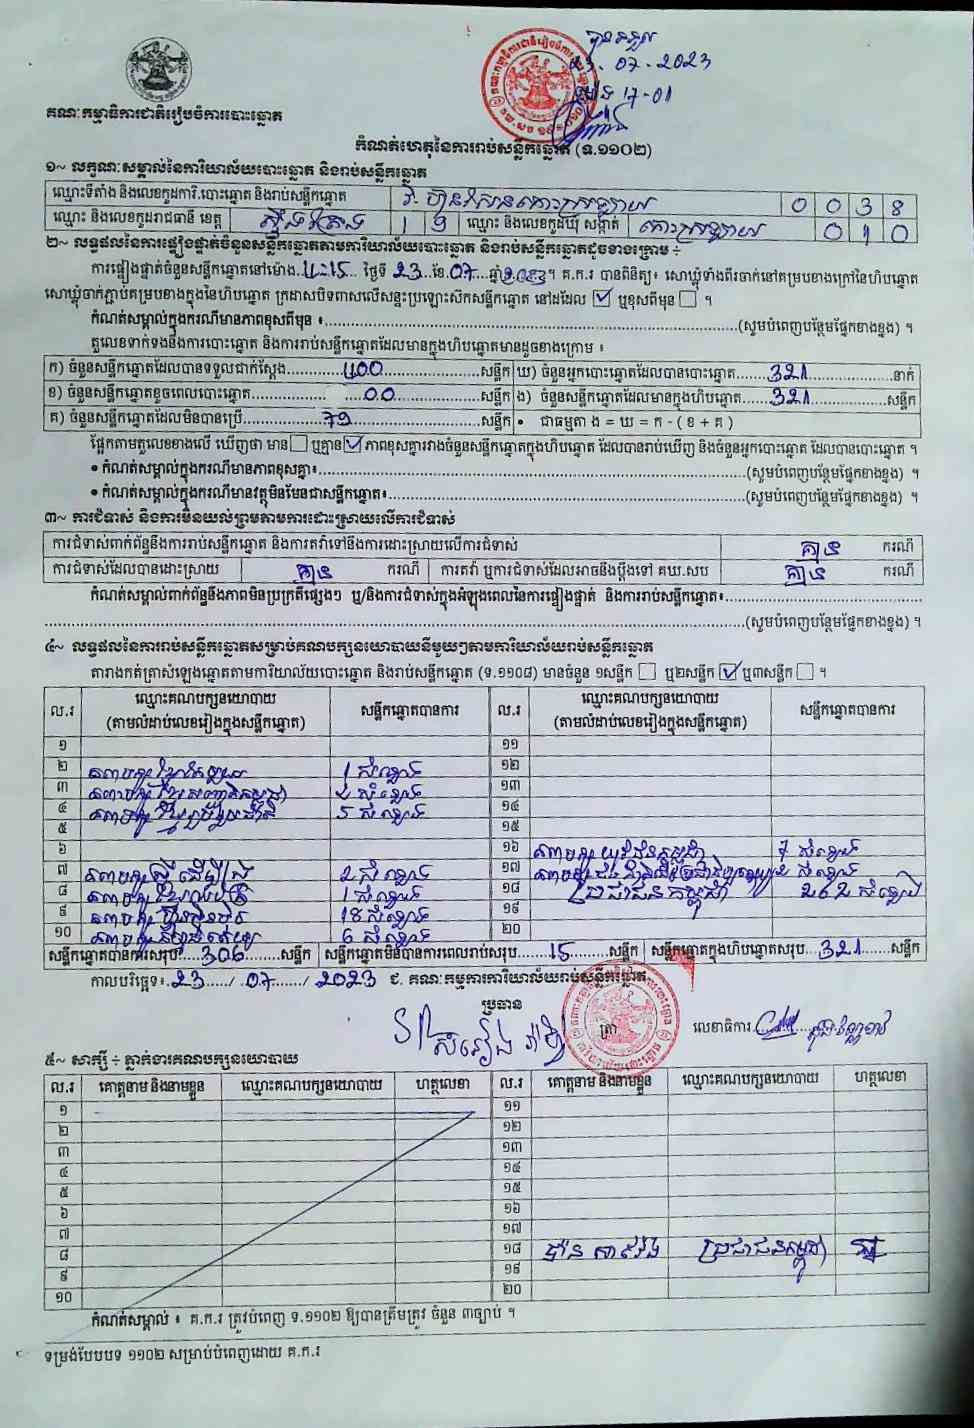 ២៣-07-2023
គណៈកម្មាធិការជាតិរៀបចំការបោះឆ្នោត
កំណត់ហេតុនៃការរាប់សន្លឹកឆ្នោត (ទ.១១០២)
១~ លក្ខណៈសម្គាល់នៃការិយាល័យបោះឆ្នោត និងរាប់សន្លឹកឆ្នោត
ឈ្មោះទីតាំង និងលេខកូដការិ.បោះឆ្នោត និងរាប់សន្លឹកឆ្នោត 0 0 3 8
ឈ្មោះ និងលេខកូដរាជធានី ខេត្ត ស្ទឹងត្រែង 1 9 ឈ្មោះ និងលេខកូដឃុំ សង្កាត់ 0 1 0
២~ លទ្ធផលនៃការផ្ទៀងផ្ទាត់ចំនួនសន្លឹកឆ្នោតតាមការិយាល័យបោះឆ្នោត និងរាប់សន្លឹកឆ្នោតដូចខាងក្រោម ÷
ការផ្ទៀងផ្ទាត់ចំនួនសន្លឹកឆ្នោតនៅម៉ោង ថ្ងៃទី 23 ខែ 07 ឆ្នាំ 2023។ គ.ក.រ បានពិនិត្យ៖ សោឃ្លុំទាំងពីរចាក់នៅគម្របខាងក្រៅនៃហិបឆ្នោត
សោឃ្លុំចាក់ភ្ជាប់គម្របខាងក្នុងនៃហិបឆ្នោត ក្រដាសបិទពាសលើសន្ទះប្រឡោះសិកសន្លឹកឆ្នោត នៅដដែល ☑ ឬខុសពីមុន ☐ ។
កំណត់សម្គាល់ក្នុងករណីមានភាពខុសពីមុន ៖ (សូមបំពេញបន្ថែមផ្នែកខាងខ្នង) ។
តួលេខទាក់ទងនឹងការបោះឆ្នោត និងការរាប់សន្លឹកឆ្នោតដែលមានក្នុងហិបឆ្នោតមានដូចខាងក្រោម ៖
ក) ចំនួនសន្លឹកឆ្នោតដែលបានទទួលជាក់ស្តែង 400 សន្លឹក ឃ) ចំនួនអ្នកបោះឆ្នោតដែលបានបោះឆ្នោត 321 នាក់
ខ) ចំនួនសន្លឹកឆ្នោតខូចពេលបោះឆ្នោត 00 សន្លឹក ង) ចំនួនសន្លឹកឆ្នោតដែលមានក្នុងហិបឆ្នោត 321 សន្លឹក
គ) ចំនួនសន្លឹកឆ្នោតដែលមិនបានប្រើ 79 សន្លឹក • ជាធម្មតា ង = ឃ = ក - ( ខ + គ )
ផ្អែកតាមតួលេខខាងលើ ឃើញថា មាន ☐ ឬគ្មាន ☑ ភាពខុសគ្នារវាងចំនួនសន្លឹកឆ្នោតក្នុងហិបឆ្នោត ដែលបានរាប់ឃើញ និងចំនួនអ្នកបោះឆ្នោត ដែលបានបោះឆ្នោត ។
• កំណត់សម្គាល់ក្នុងករណីមានភាពខុសគ្នា៖ (សូមបំពេញបន្ថែមផ្នែកខាងខ្នង) ។
• កំណត់សម្គាល់ក្នុងករណីមានវត្ថុមិនមែនជាសន្លឹកឆ្នោត៖ (សូមបំពេញបន្ថែមផ្នែកខាងខ្នង) ។
៣~ ការជំទាស់ និងការមិនយល់ព្រមតាមការដោះស្រាយលើការជំទាស់
ការជំទាស់ពាក់ព័ន្ធនឹងការរាប់សន្លឹកឆ្នោត និងការតវ៉ាទៅនឹងការដោះស្រាយលើការជំទាស់ គ្មាន ករណី
ការជំទាស់ដែលបានដោះស្រាយ គ្មាន ករណី ការតវ៉ា ឬការជំទាស់ដែលអាចនឹងប្តឹងទៅ គឃ.សប គ្មាន ករណី
កំណត់សម្គាល់ពាក់ព័ន្ធនឹងភាពមិនប្រក្រតីផ្សេងៗ ឬ/និងការជំទាស់ក្នុងអំឡុងពេលនៃការផ្ទៀងផ្ទាត់ និងការរាប់សន្លឹកឆ្នោត៖
(សូមបំពេញបន្ថែមផ្នែកខាងខ្នង) ។
៤~ លទ្ធផលនៃការរាប់សន្លឹកឆ្នោតសម្រាប់គណបក្សនយោបាយនីមួយៗតាមការិយាល័យរាប់សន្លឹកឆ្នោត
តារាងកត់ត្រាសំឡេងឆ្នោតតាមការិយាល័យបោះឆ្នោត និងរាប់សន្លឹកឆ្នោត (ទ.១១០៨) មានចំនួន ១សន្លឹក ☐ ឬ២សន្លឹក ☑ ឬ៣សន្លឹក ☐ ។
ល.រ ឈ្មោះគណបក្សនយោបាយ (តាមលំដាប់លេខរៀងក្នុងសន្លឹកឆ្នោត) សន្លឹកឆ្នោតបានការ ល.រ ឈ្មោះគណបក្សនយោបាយ (តាមលំដាប់លេខរៀងក្នុងសន្លឹកឆ្នោត) សន្លឹកឆ្នោតបានការ
១ ១១
២ 1 សំឡេង ១២
៣ សំឡេង ១៣
៤ 5 សំឡេង ១៤
៥ ១៥
៦ ១៦ 7 សំឡេង
៧ 2 សំឡេង ១៧ 2 សំឡេង
៨ 1 សំឡេង ១៨ ប្រជាជនកម្ពុជា 262 សំឡេង
៩ 18 សំឡេង ១៩
១០ 6 សំឡេង ២០
សន្លឹកឆ្នោតបានការសរុប 306 សន្លឹក សន្លឹកឆ្នោតមិនបានការពេលរាប់សរុប 15 សន្លឹក សន្លឹកឆ្នោតក្នុងហិបឆ្នោតសរុប 321 សន្លឹក
កាលបរិច្ឆេទ៖ 23 / 07 / 2023 ជ. គណៈកម្មការការិយាល័យរាប់សន្លឹកឆ្នោត
ប្រធាន
ត្រា
លេខាធិការ
៥~ សាក្សី ÷ ភ្នាក់ងារគណបក្សនយោបាយ
ល.រ គោត្តនាម និងនាមខ្លួន ឈ្មោះគណបក្សនយោបាយ ហត្ថលេខា ល.រ គោត្តនាម និងនាមខ្លួន ឈ្មោះគណបក្សនយោបាយ ហត្ថលេខា
១ ១១
២ ១២
៣ ១៣
៤ ១៤
៥ ១៥
៦ ១៦
៧ ១៧
៨ ១៨ ប្រជាជនកម្ពុជា
៩ ១៩
១០ ២០
កំណត់សម្គាល់ ៖ គ.ក.រ ត្រូវបំពេញ ទ.១១០២ ឱ្យបានត្រឹមត្រូវ ចំនួន ៣ច្បាប់ ។
ទម្រង់បែបបទ ១១០២ សម្រាប់បំពេញដោយ គ.ក.រ